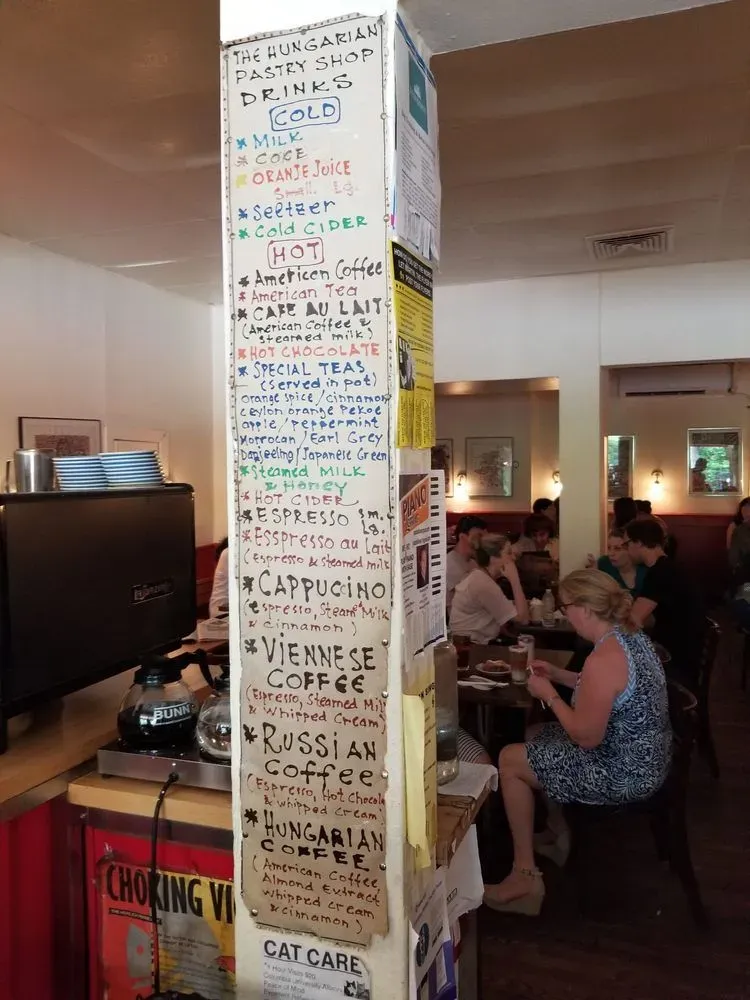 THE HUNGARIAN
PASTRY SHOP
DRINKS
COLD
* MILK
* COKE
* ORANJE JUICE
Small. Lg.
* Seltzer
* Cold CIDER
HOT
* American Coffee
* American Tea
* CAFE AU LAIT
(American Coffee &
steamed milk)
* HOT CHOCOLATE
* SPECIAL TEAS
(served in pot)
orange spice/cinnamon
ceylon orange Pekoe
apple/peppermint
Morrocan/Earl Grey
Darjeeling/Japanese Green
* Steamed MILK
& Honey
* HOT CIDER
* ESPRESSO Sm.
Lg.
* ESspresso au Lait
(espresso & steamed milk
* CAPPUCINO
(espresso, Steam Milk
& cinnamon)
* VIENNESE
COFFEE
(Espresso, Steamed Mil
& Whipped Cream)
* RUSSIAN
Coffee
(Espresso, Hot Chocola
& whipped cream)
* HUNGARIAN
COFFEE
(American Coffee,
Almond Extract
whipped cream
& cinnamon)
CAT CARE
Columbia University
Peace of Mind
PIANO
BUNN
CHOKING VI